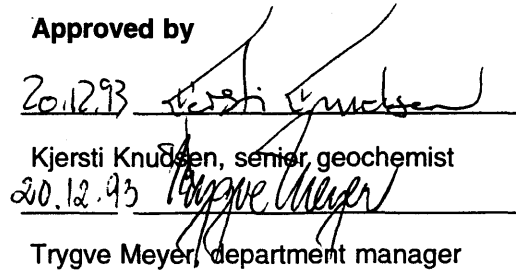 Approved by
20.12.93 Kjersti Knudsen
Kjersti Knudsen, senior geochemist
20.12.93 Trygve Meyer
Trygve Meyer, department manager